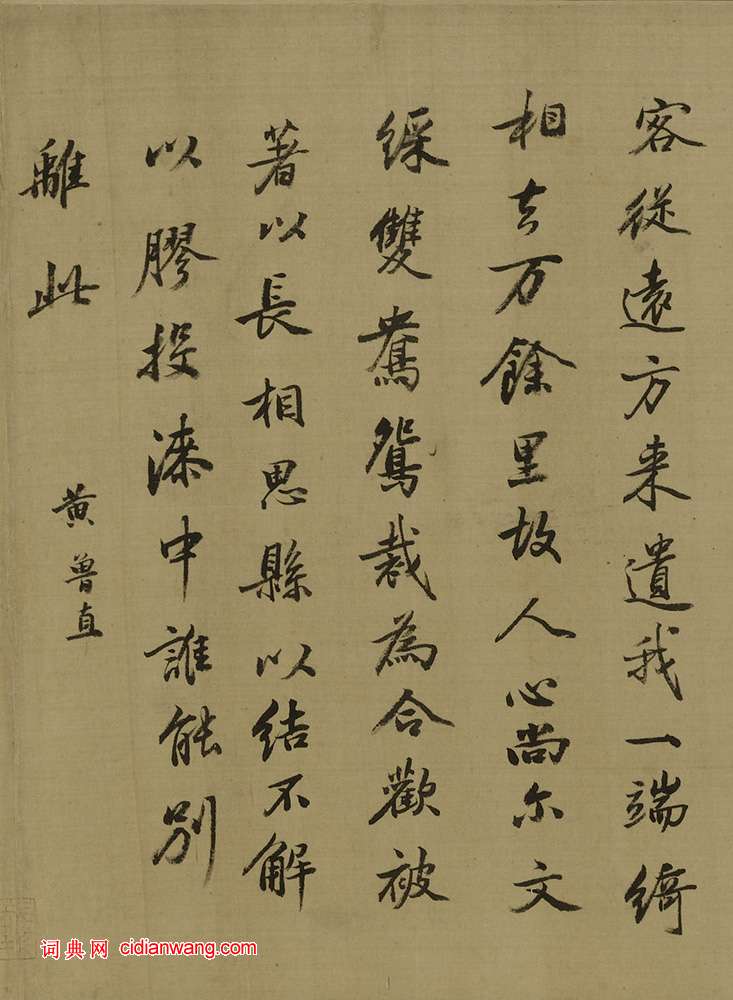 客從遠方来遺我一端綺
相去万餘里故人心尚尔文
綵雙鴦鴛裁為合歡被
著以長相思縣以結不解
以膠投漆中誰能別
離此
黄魯直
词典网 cidianwang.com